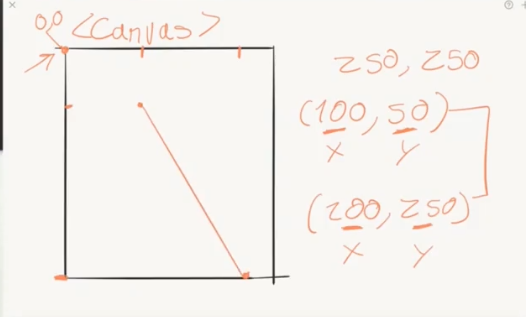 0,0 <Canvas>
250, 250
(100, 50)
X Y
(200, 250)
X Y